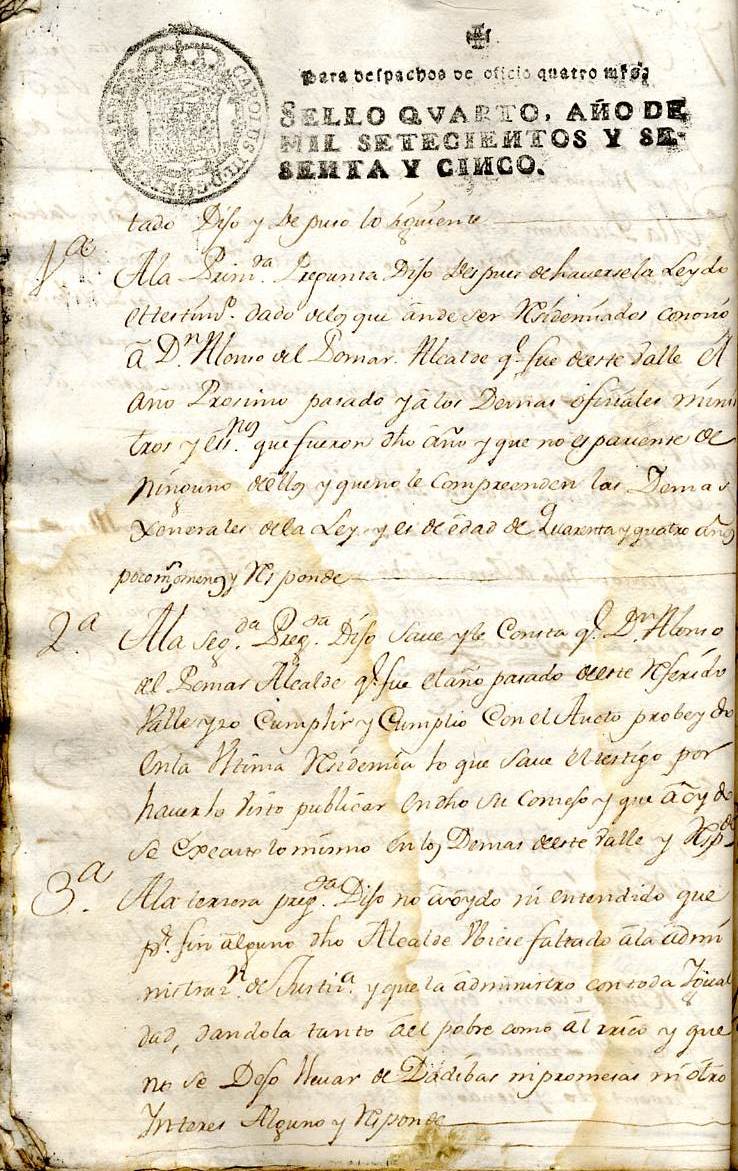 Para despachos de oficio quatro mrs.
SELLO QVARTO, AÑO DE
MIL SETECIENTOS Y SE-
SENTA Y CINCO.
CAROLUS III D G
tado Dijo y depuso lo siguiente
1ª
Ala Primda. Pregunta Dijo despues de haversela Leydo
el testimo. dado delos que ande ser Residenciados conocio
a Dn. Alonso del Pomar Alcalde qe. fue deeste Valle el
año Procsimo pasado y a los Demas ofiziales minis
tros y esnos. que fueron dho año y que no es pariente de
ninguno dellos y que no le Compreenden las Demas
Xenerales de la Ley y es de edad de Quarenta y quatro años
poco ms. o menos y Responde
2.ª
Ala segda. Pregda. Dijo save y le Consta qe. Dn. Alonso
del Pomar Alcalde qe. fue el año pasado deeste Referido
Valle yzo Cumplir y Cumplio Con el Aucto probeydo
en la Ultima Residencia lo que save el testigo por
haverlo Visto publicar en dho su Consejo y que a oydo
se executo lo mismo en los Demas deeste Valle y Respde.
3.ª
Ala tersera pregda. Dijo no a oydo ni entendido que
pr. fin alguno dho Alcalde Ubiese faltado a la admi
nistrazn. de Justia. y que la administro con toda Igual
dad, dandola tanto al pobre como al rico y que
no se Dejo llevar de Dadibas ni promesas ni otro
Interes Alguno y Responde